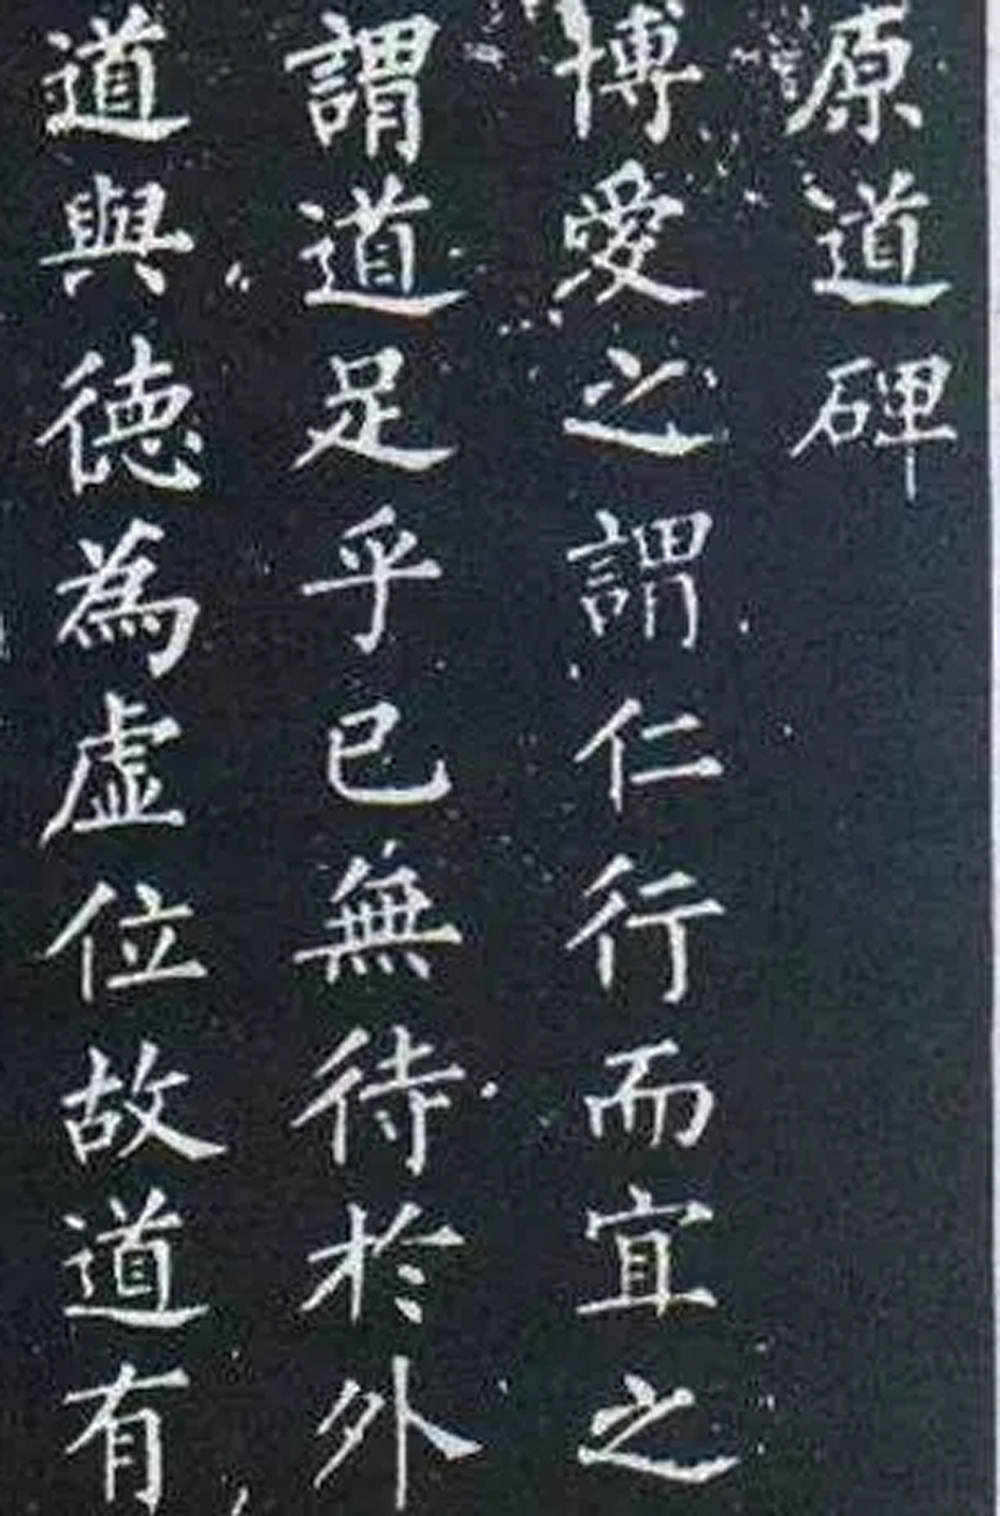 原道碑
博愛之謂仁行而宜之
謂道足乎已無待於外
道與德為虛位故道有